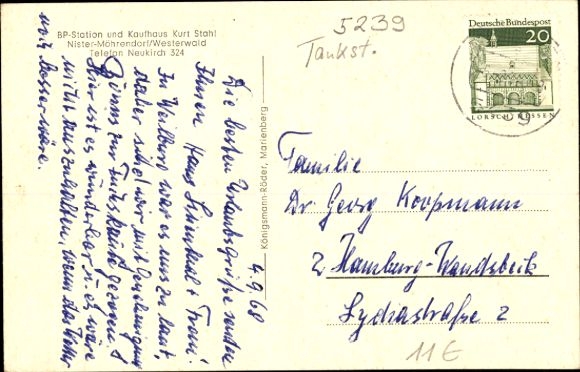 BP-Station und Kaufhaus Kurt Stahl
Nister-Möhrendorf/Westerwald
Telefon Neukirch 324
5239
Tankst.
Deutsche Bundespost
20
LORSCH/HESSEN
Königsmann-Röder, Marienberg
4.9.68
Die besten Urlaubsgrüße senden
Ihnen Hans + Frau.
In Weilburg war es uns zu laut,
daher sind wir mit Genehmigung
Bönns zur gezogen.
Hier ist es wunderbar u. es wäre
nicht auszuhalten, wenn das Wetter
noch besser wäre.
Familie
Dr Georg Koopmann
2 Hamburg-Wandsbeck
Lydiastraße 2
11€